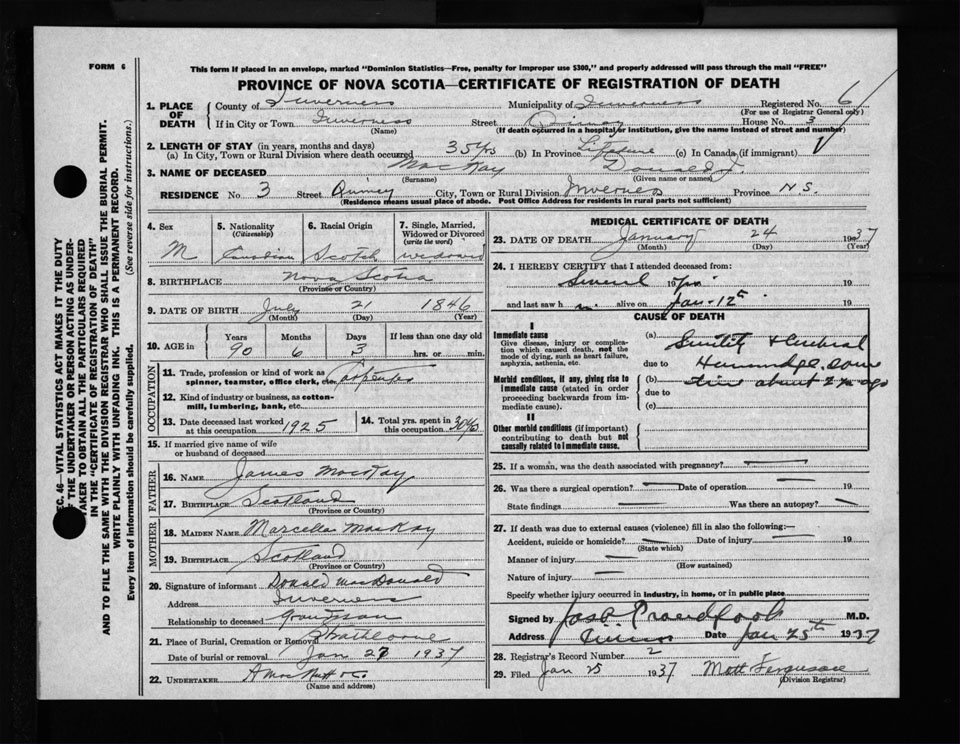 FORM 6
This form if placed in an envelope, marked "Dominion Statistics—Free, penalty for improper use $300," and properly addressed will pass through the mail "FREE"
PROVINCE OF NOVA SCOTIA—CERTIFICATE OF REGISTRATION OF DEATH
1. PLACE OF DEATH
County of Inverness Municipality of Inverness Registered No. 6
(For use of Registrar General only)
If in City or Town Inverness Street House No. 3
(Name) (If death occurred in a hospital or institution, give the name instead of street and number)
2. LENGTH OF STAY (in years, months and days)
(a) In City, Town or Rural Division where death occurred 35 yrs (b) In Province Lifetime (c) In Canada (if immigrant)
3. NAME OF DECEASED MacKay Donald J.
(Surname) (Given name or names)
RESIDENCE No. 3 Street City, Town or Rural Division Inverness Province N.S.
(Residence means usual place of abode. Post Office Address for residents in rural parts not sufficient)
4. Sex
M
5. Nationality
(Citizenship)
Canadian
6. Racial Origin
Scotch
7. Single, Married, Widowed or Divorced
(write the word)
widowed
8. BIRTHPLACE Nova Scotia
(Province or Country)
9. DATE OF BIRTH July 21 1846
(Month) (Day) (Year)
10. AGE in Years Months Days If less than one day old
90 6 3 hrs. or min.
OCCUPATION
11. Trade, profession or kind of work as spinner, teamster, office clerk, etc. Carpenter
12. Kind of industry or business, as cotton-mill, lumbering, bank, etc.
13. Date deceased last worked at this occupation 1925
14. Total yrs. spent in this occupation 30 yrs
15. If married give name of wife or husband of deceased
FATHER
16. NAME James MacKay
17. BIRTHPLACE Scotland
(Province or Country)
MOTHER
18. MAIDEN NAME Marcella MacKay
19. BIRTHPLACE Scotland
(Province or Country)
20. Signature of informant Donald MacDonald
Address Inverness
Relationship to deceased Grandson
21. Place of Burial, Cremation or Removal Strathlorne
Date of burial or removal Jan 27 1937
22. UNDERTAKER
(Name and address)
MEDICAL CERTIFICATE OF DEATH
23. DATE OF DEATH January 24 1937
(Month) (Day) (Year)
24. I HEREBY CERTIFY that I attended deceased from:
Several yrs 19
and last saw h m alive on Jan - 12th 19
CAUSE OF DEATH
I
Immediate cause
Give disease, injury or complication which caused death, not the mode of dying, such as heart failure, asphyxia, asthenia, etc.
(a) Senility & Cerebral
due to Hemorrhage some
Morbid conditions, if any, giving rise to immediate cause (stated in order proceeding backwards from immediate cause).
(b) time about 2 ago
due to
(c)
II
Other morbid conditions (if important) contributing to death but not causally related to immediate cause.
25. If a woman, was the death associated with pregnancy?
26. Was there a surgical operation? Date of operation 19
State findings Was there an autopsy?
27. If death was due to external causes (violence) fill in also the following:—
Accident, suicide or homicide? Date of injury 19
(State which)
Manner of injury
(How sustained)
Nature of injury
Specify whether injury occurred in industry, in home, or in public place
Signed by Jas Proudfoot M.D.
Address Date Jan 25th 1937
28. Registrar's Record Number 2
29. Filed Jan 25 1937 Ferguson
(Division Registrar)
SEC. 46—VITAL STATISTICS ACT MAKES IT THE DUTY
OF THE UNDERTAKER OR PERSON ACTING AS UNDER-
TAKER TO OBTAIN ALL THE PARTICULARS REQUIRED
IN THE "CERTIFICATE OF REGISTRATION OF DEATH"
AND TO FILE THE SAME WITH THE DIVISION REGISTRAR WHO SHALL ISSUE THE BURIAL PERMIT.
WRITE PLAINLY WITH UNFADING INK. THIS IS A PERMANENT RECORD.
Every item of information should be carefully supplied. (See reverse side for instructions.)